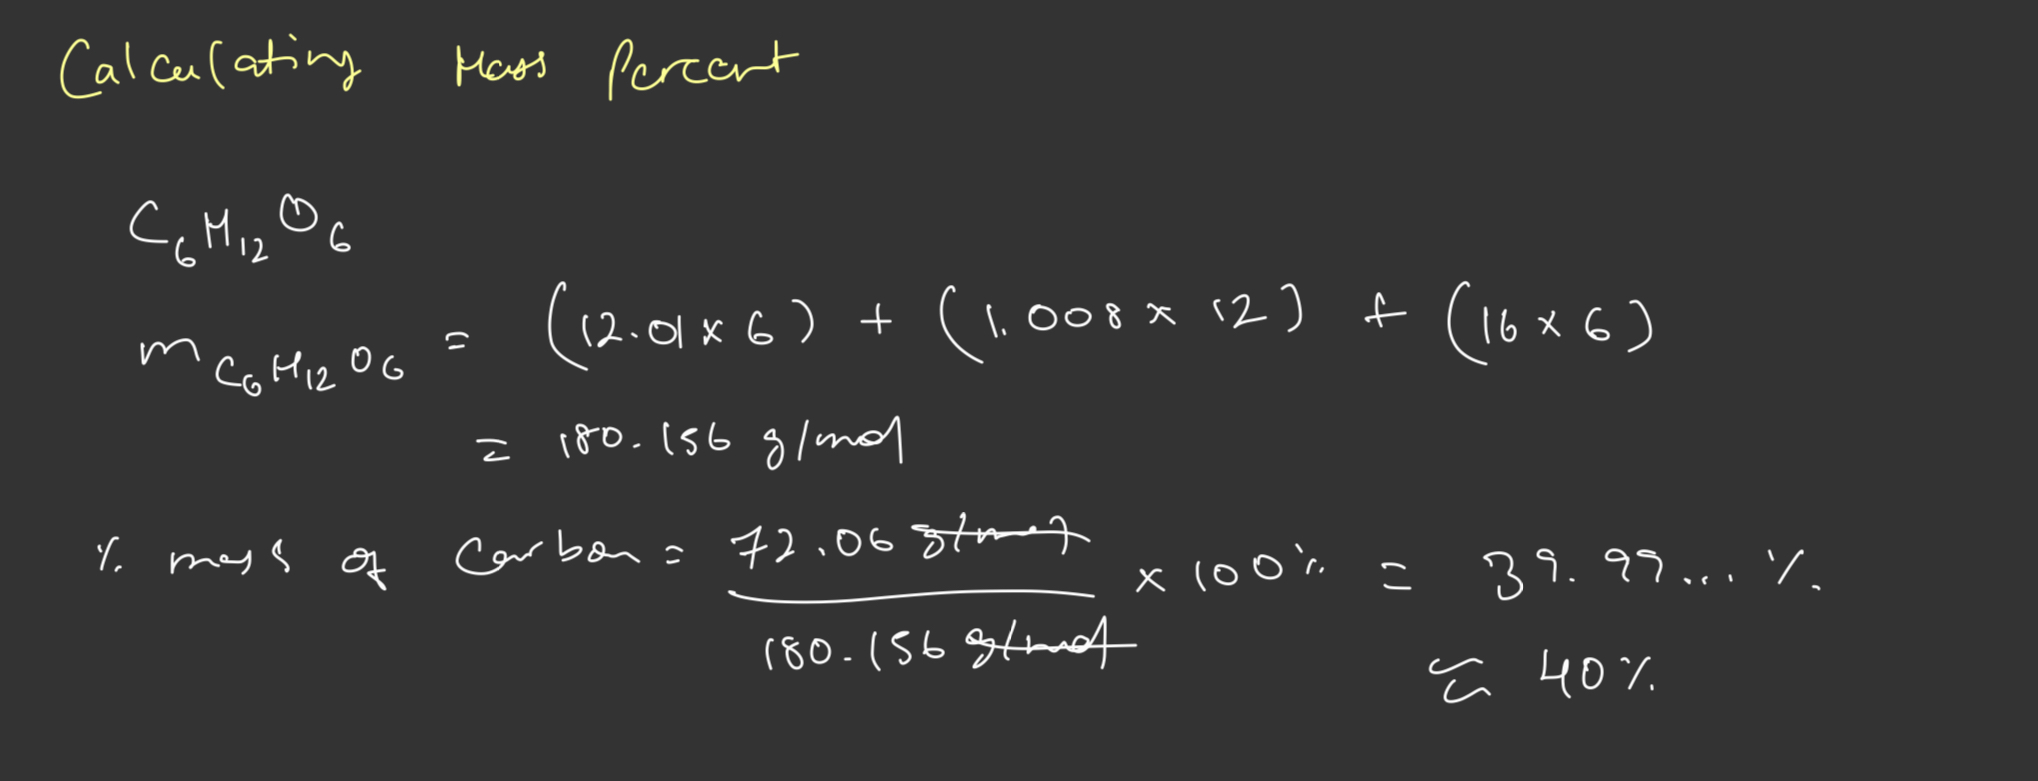 Calculating Mass Percent
C₆H₁₂O₆
m C₆H₁₂O₆ = (12.01 × 6) + (1.008 × 12) + (16 × 6)
= 180.156 g/mol
% mass of Carbon = 72.06 g/mol / 180.156 g/mol × 100% = 39.99...%
≈ 40%